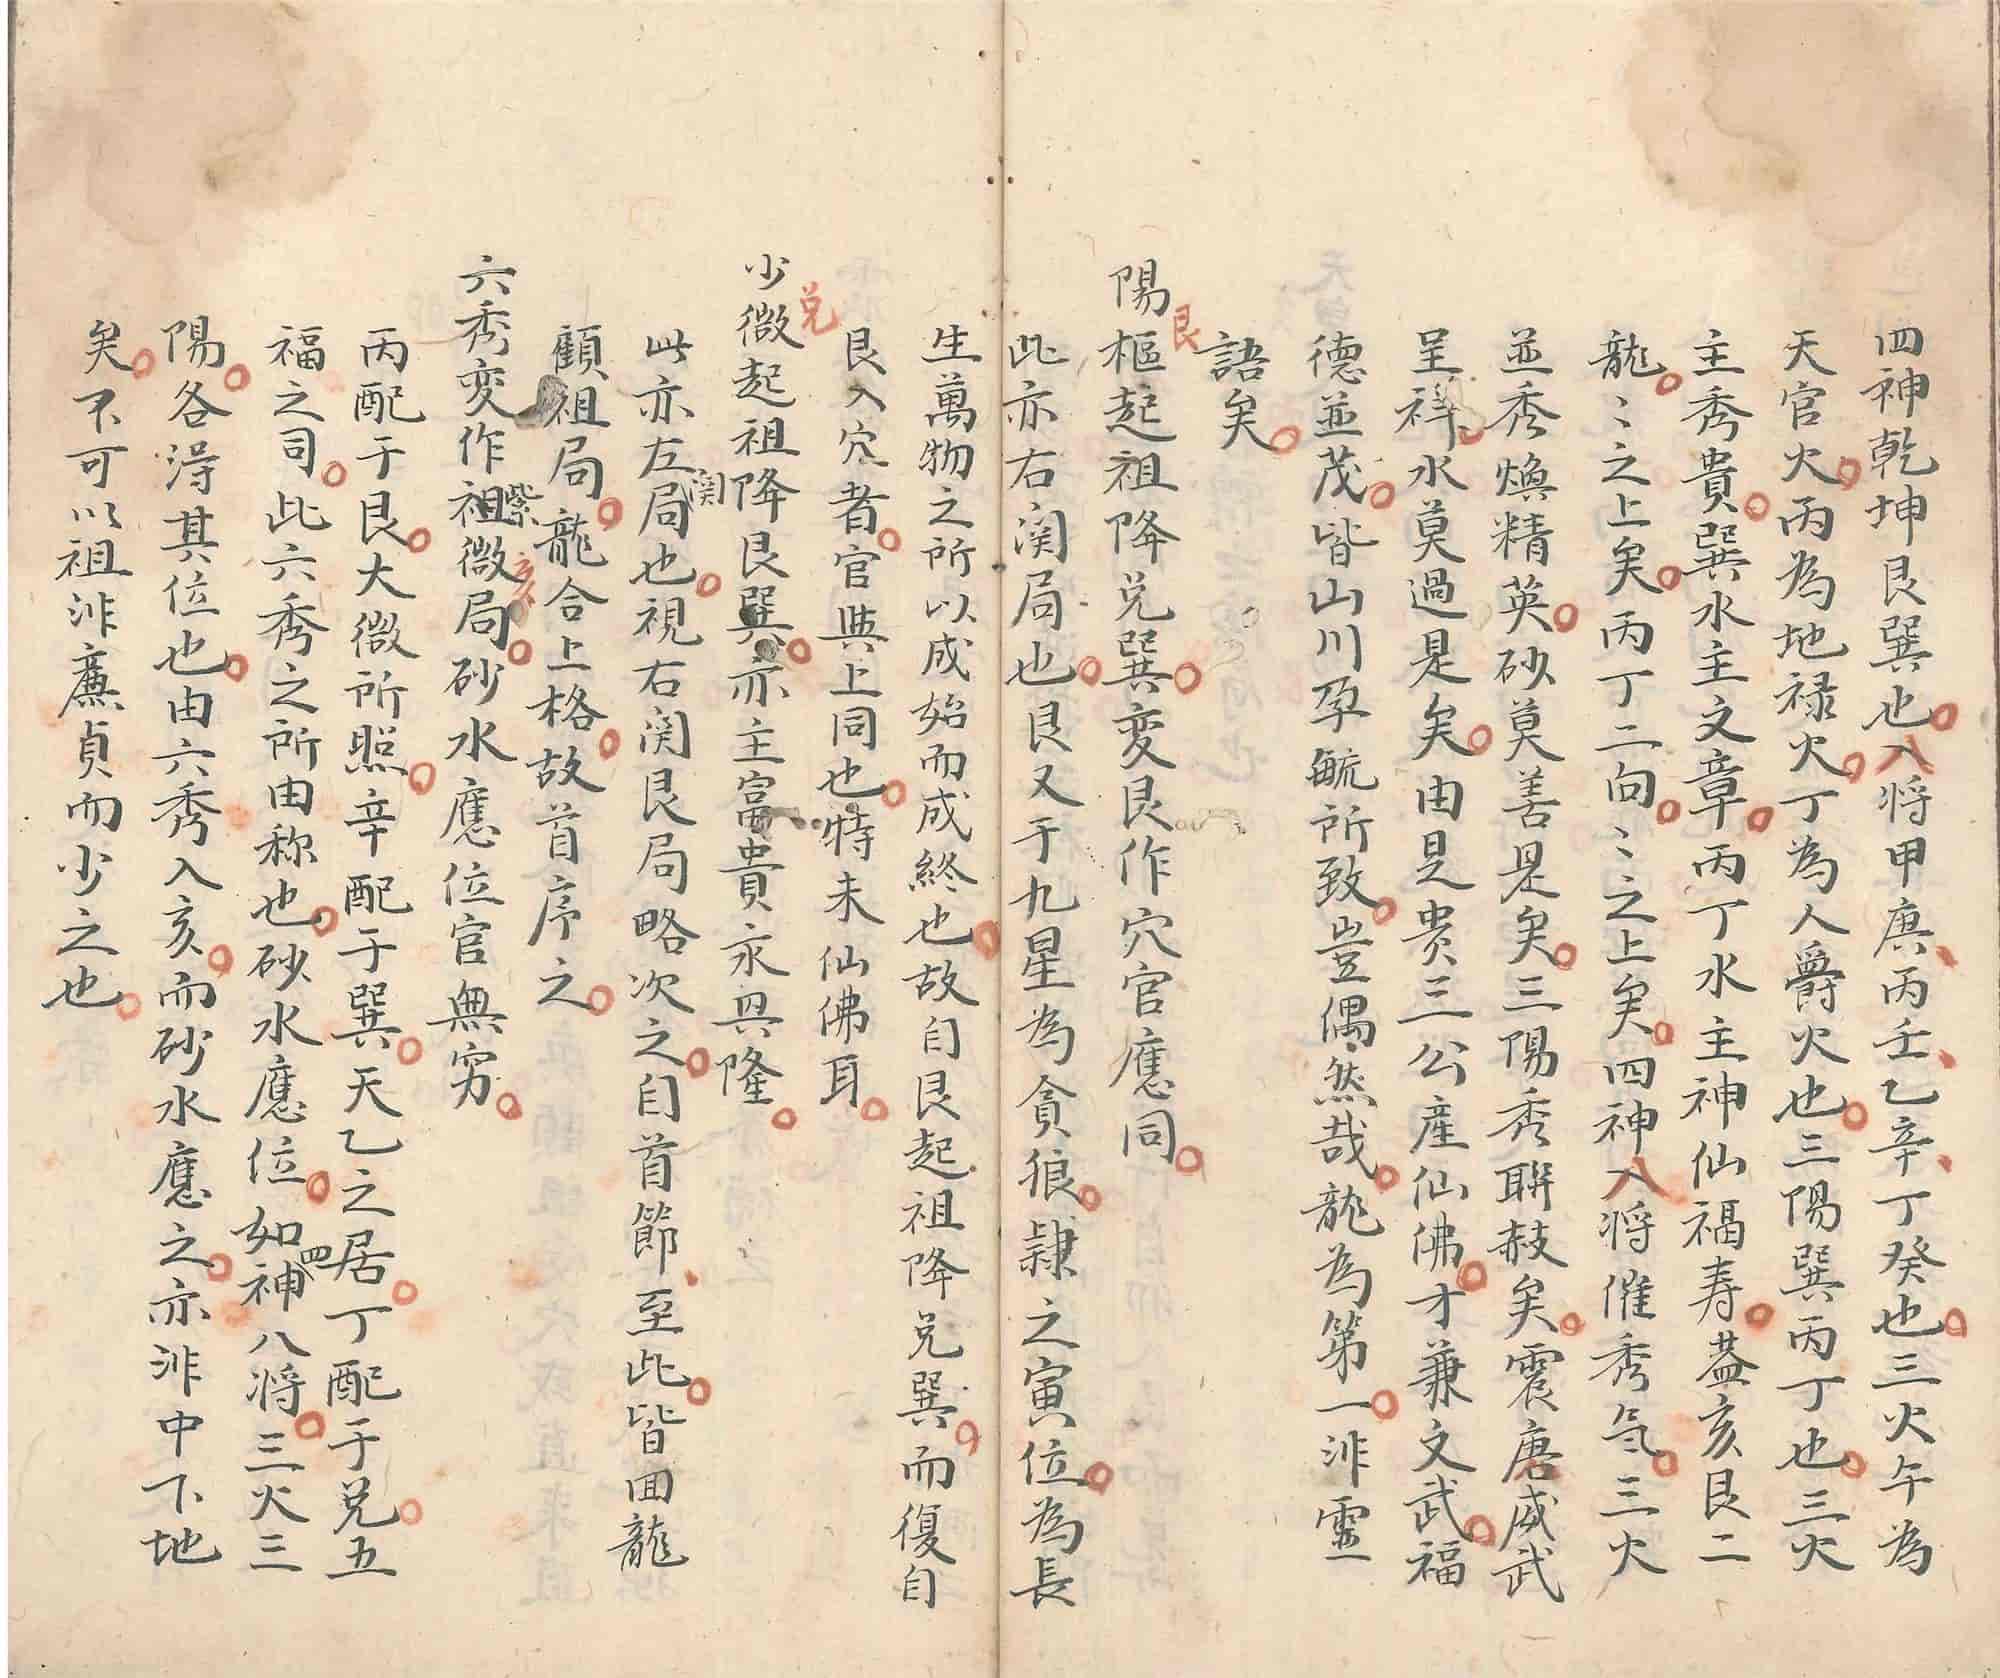 四神乾坤艮巽也入将甲庚丙壬乙辛丁癸也三火午為
天官火丙為地禄火丁為人爵火也三陽巽丙丁也三火
主秀貴巽水主文章丙丁水主神仙福寿葢亥艮二
龍〻之上矣丙丁二向〻之上矣四神入将催秀气三火
並秀煥精英砂莫善是矣三陽秀聨赦矣震唐威武
呈祥水莫過是矣由是贵三公産仙佛才兼文武福
德並茂皆山川孕毓所致豈偶然哉龍為第一洣靈
語矣
陽樞起祖降兊巽变艮作穴官應同
艮
此亦右関局也艮又于九星為貪狼隷之寅位為長
生萬物之所以成始而成終也故自艮起祖降兊巽而復自
艮入穴者官與上同也特未仙佛耳
少微起祖降艮巽亦主富貴永興隆
兊
此亦左関局也視右関艮局略次之自首節至此皆囬龍
顧祖局龍合上格故首序之
六秀变作祖微局砂水應位官無穷
紫
亥
丙配于艮大微所照辛配于巽天乙之居丁配于兊五
福之司此六秀之所由称也砂水應位如四神八将三火三
陽各淂其位也由六秀入亥而砂水應之亦洣中下地
矣不可以祖洣廉貞而少之也